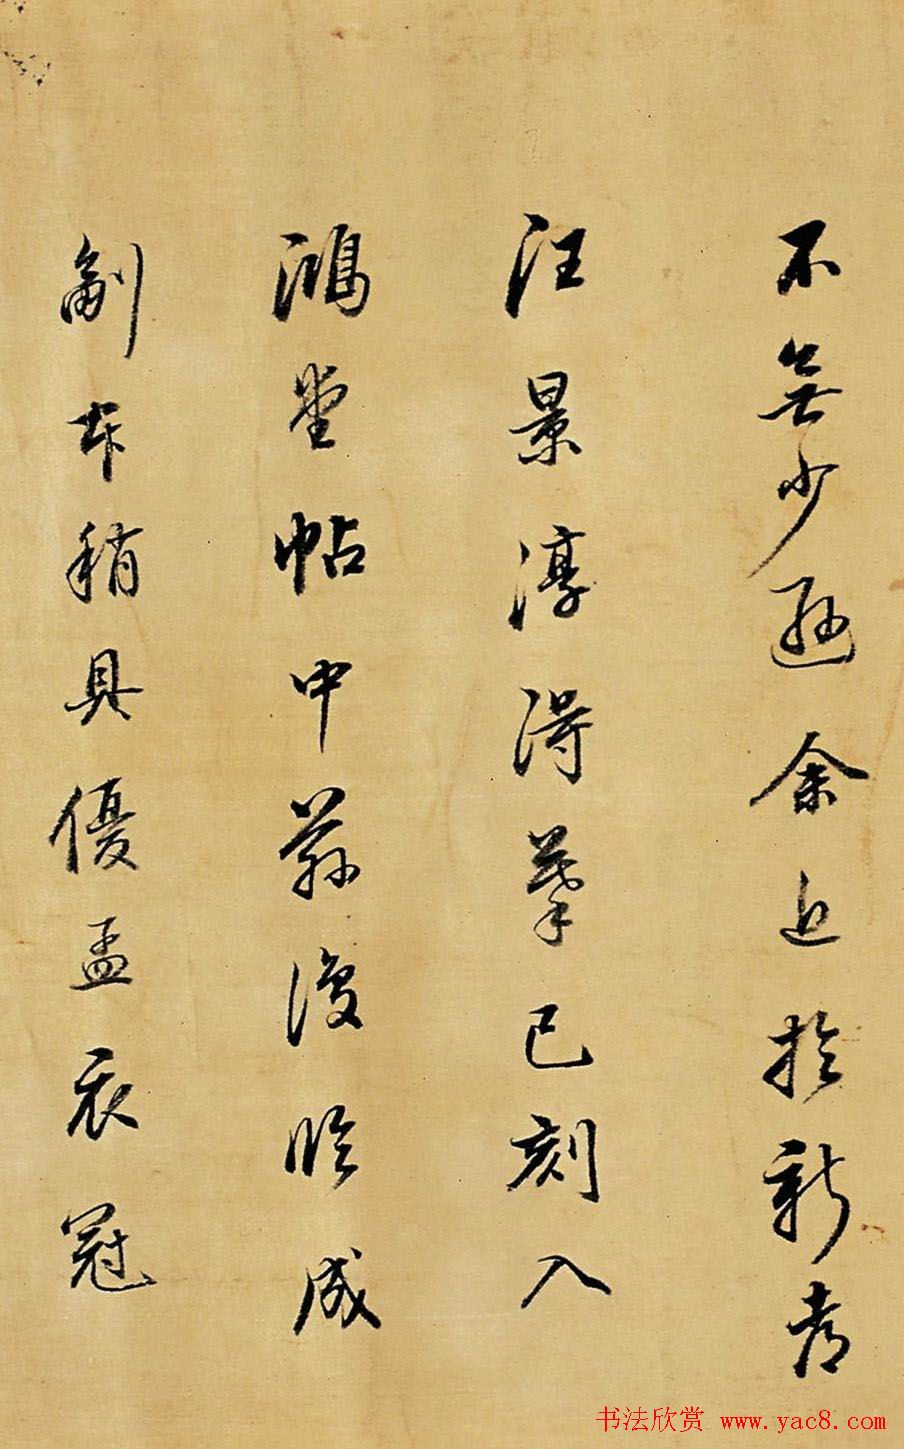 不無少遜余近於新都
汪景淳得摹已刻入
鴻堂帖中茲復臨成
副本稍具優孟衣冠
书法欣赏 www.yac8.com